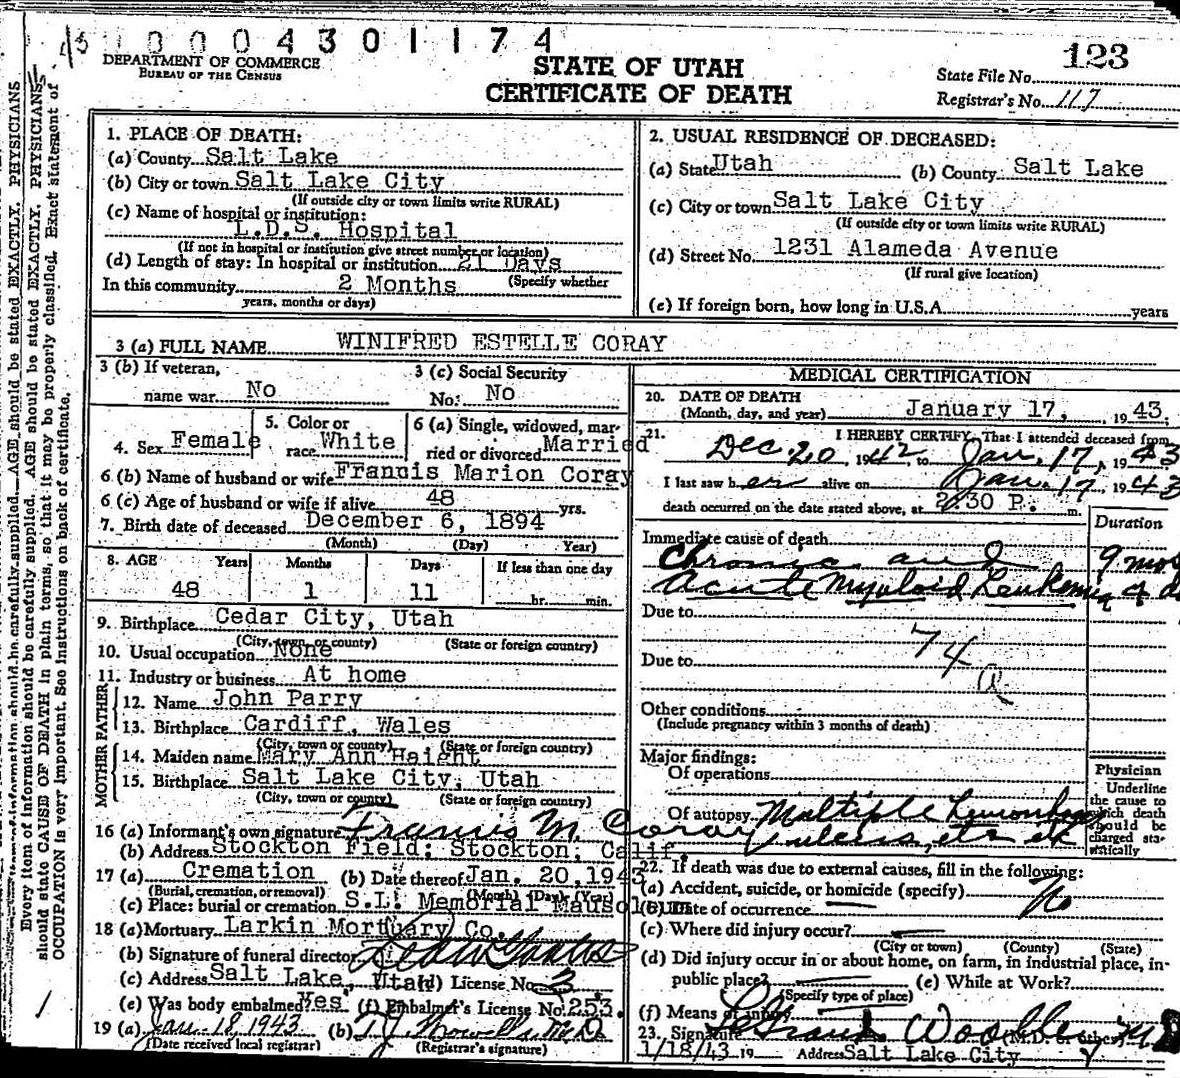 1 0 0 0 4 3 0 1 1 7 4
DEPARTMENT OF COMMERCE
BUREAU OF THE CENSUS
STATE OF UTAH
CERTIFICATE OF DEATH
123
State File No.
Registrar's No. 117
Every item of information should be carefully supplied. AGE should be stated EXACTLY. PHYSICIANS
should state CAUSE OF DEATH in plain terms, so that it may be properly classified. Exact statement of
OCCUPATION is very important. See instructions on back of certificate.
1. PLACE OF DEATH:
(a) County Salt Lake
(b) City or town Salt Lake City
(If outside city or town limits write RURAL)
(c) Name of hospital or institution:
L.D.S. Hospital
(If not in hospital or institution give street number or location)
(d) Length of stay: In hospital or institution 21 Days
(Specify whether
In this community 2 Months
years, months or days)
2. USUAL RESIDENCE OF DECEASED:
(a) State Utah (b) County Salt Lake
(c) City or town Salt Lake City
(If outside city or town limits write RURAL)
(d) Street No. 1231 Alameda Avenue
(If rural give location)
(e) If foreign born, how long in U.S.A. years
3 (a) FULL NAME WINIFRED ESTELLE CORAY
3 (b) If veteran,
name war No
3 (c) Social Security
No. No
4. Sex Female
5. Color or
race White
6 (a) Single, widowed, mar-
ried or divorced Married
6 (b) Name of husband or wife Francis Marion Coray
6 (c) Age of husband or wife if alive 48 yrs.
7. Birth date of deceased December 6, 1894
(Month) (Day) Year)
8. AGE Years Months Days If less than one day
48 1 11 hr. min.
9. Birthplace Cedar City, Utah
(City, town, or county) (State or foreign country)
10. Usual occupation None
11. Industry or business At home
FATHER
12. Name John Parry
13. Birthplace Cardiff, Wales
(City, town or county) (State or foreign country)
MOTHER
14. Maiden name Mary Ann Haight
15. Birthplace Salt Lake City, Utah
(City, town or county) (State or foreign country)
16 (a) Informant's own signature Francis M. Coray
(b) Address Stockton Field; Stockton, Calif.
17 (a) Cremation (b) Date thereof Jan. 20,1943
(Burial, cremation, or removal) (Month) (Day) (Year)
(c) Place: burial or cremation S.L. Memorial Mausoleum
18 (a) Mortuary Larkin Mortuary Co.
(b) Signature of funeral director
(c) Address Salt Lake, Utah (d) License No. 3
(e) Was body embalmed? Yes (f) Embalmer's License No. 253.
19 (a) Jan. 18, 1943 (b)
(Date received local registrar) (Registrar's signature)
MEDICAL CERTIFICATION
20. DATE OF DEATH
(Month, day, and year) January 17, 1943.
21. I HEREBY CERTIFY, That I attended deceased from
Dec. 20, 1942, to Jan. 17, 1943
I last saw her alive on Jan. 17, 1943
death occurred on the date stated above, at 2:30 P. m.
Duration
Immediate cause of death
Chronic and 9 mos
Acute Myeloid Leukemia 4 d
Due to
74
a
Due to
Other conditions
(Include pregnancy within 3 months of death)
Major findings:
Of operations
Of autopsy Multiple
ulcers, etc etc
Physician
Underline
the cause to
which death
should be
charged sta-
tistically
22. If death was due to external causes, fill in the following:
(a) Accident, suicide, or homicide (specify) No
(b) Date of occurrence
(c) Where did injury occur?
(City or town) (County) (State)
(d) Did injury occur in or about home, on farm, in industrial place, in
public place? (e) While at Work?
(Specify type of place)
(f) Means of injury
23. Signature (M.D. or other)
1/18/43 19 Address Salt Lake City